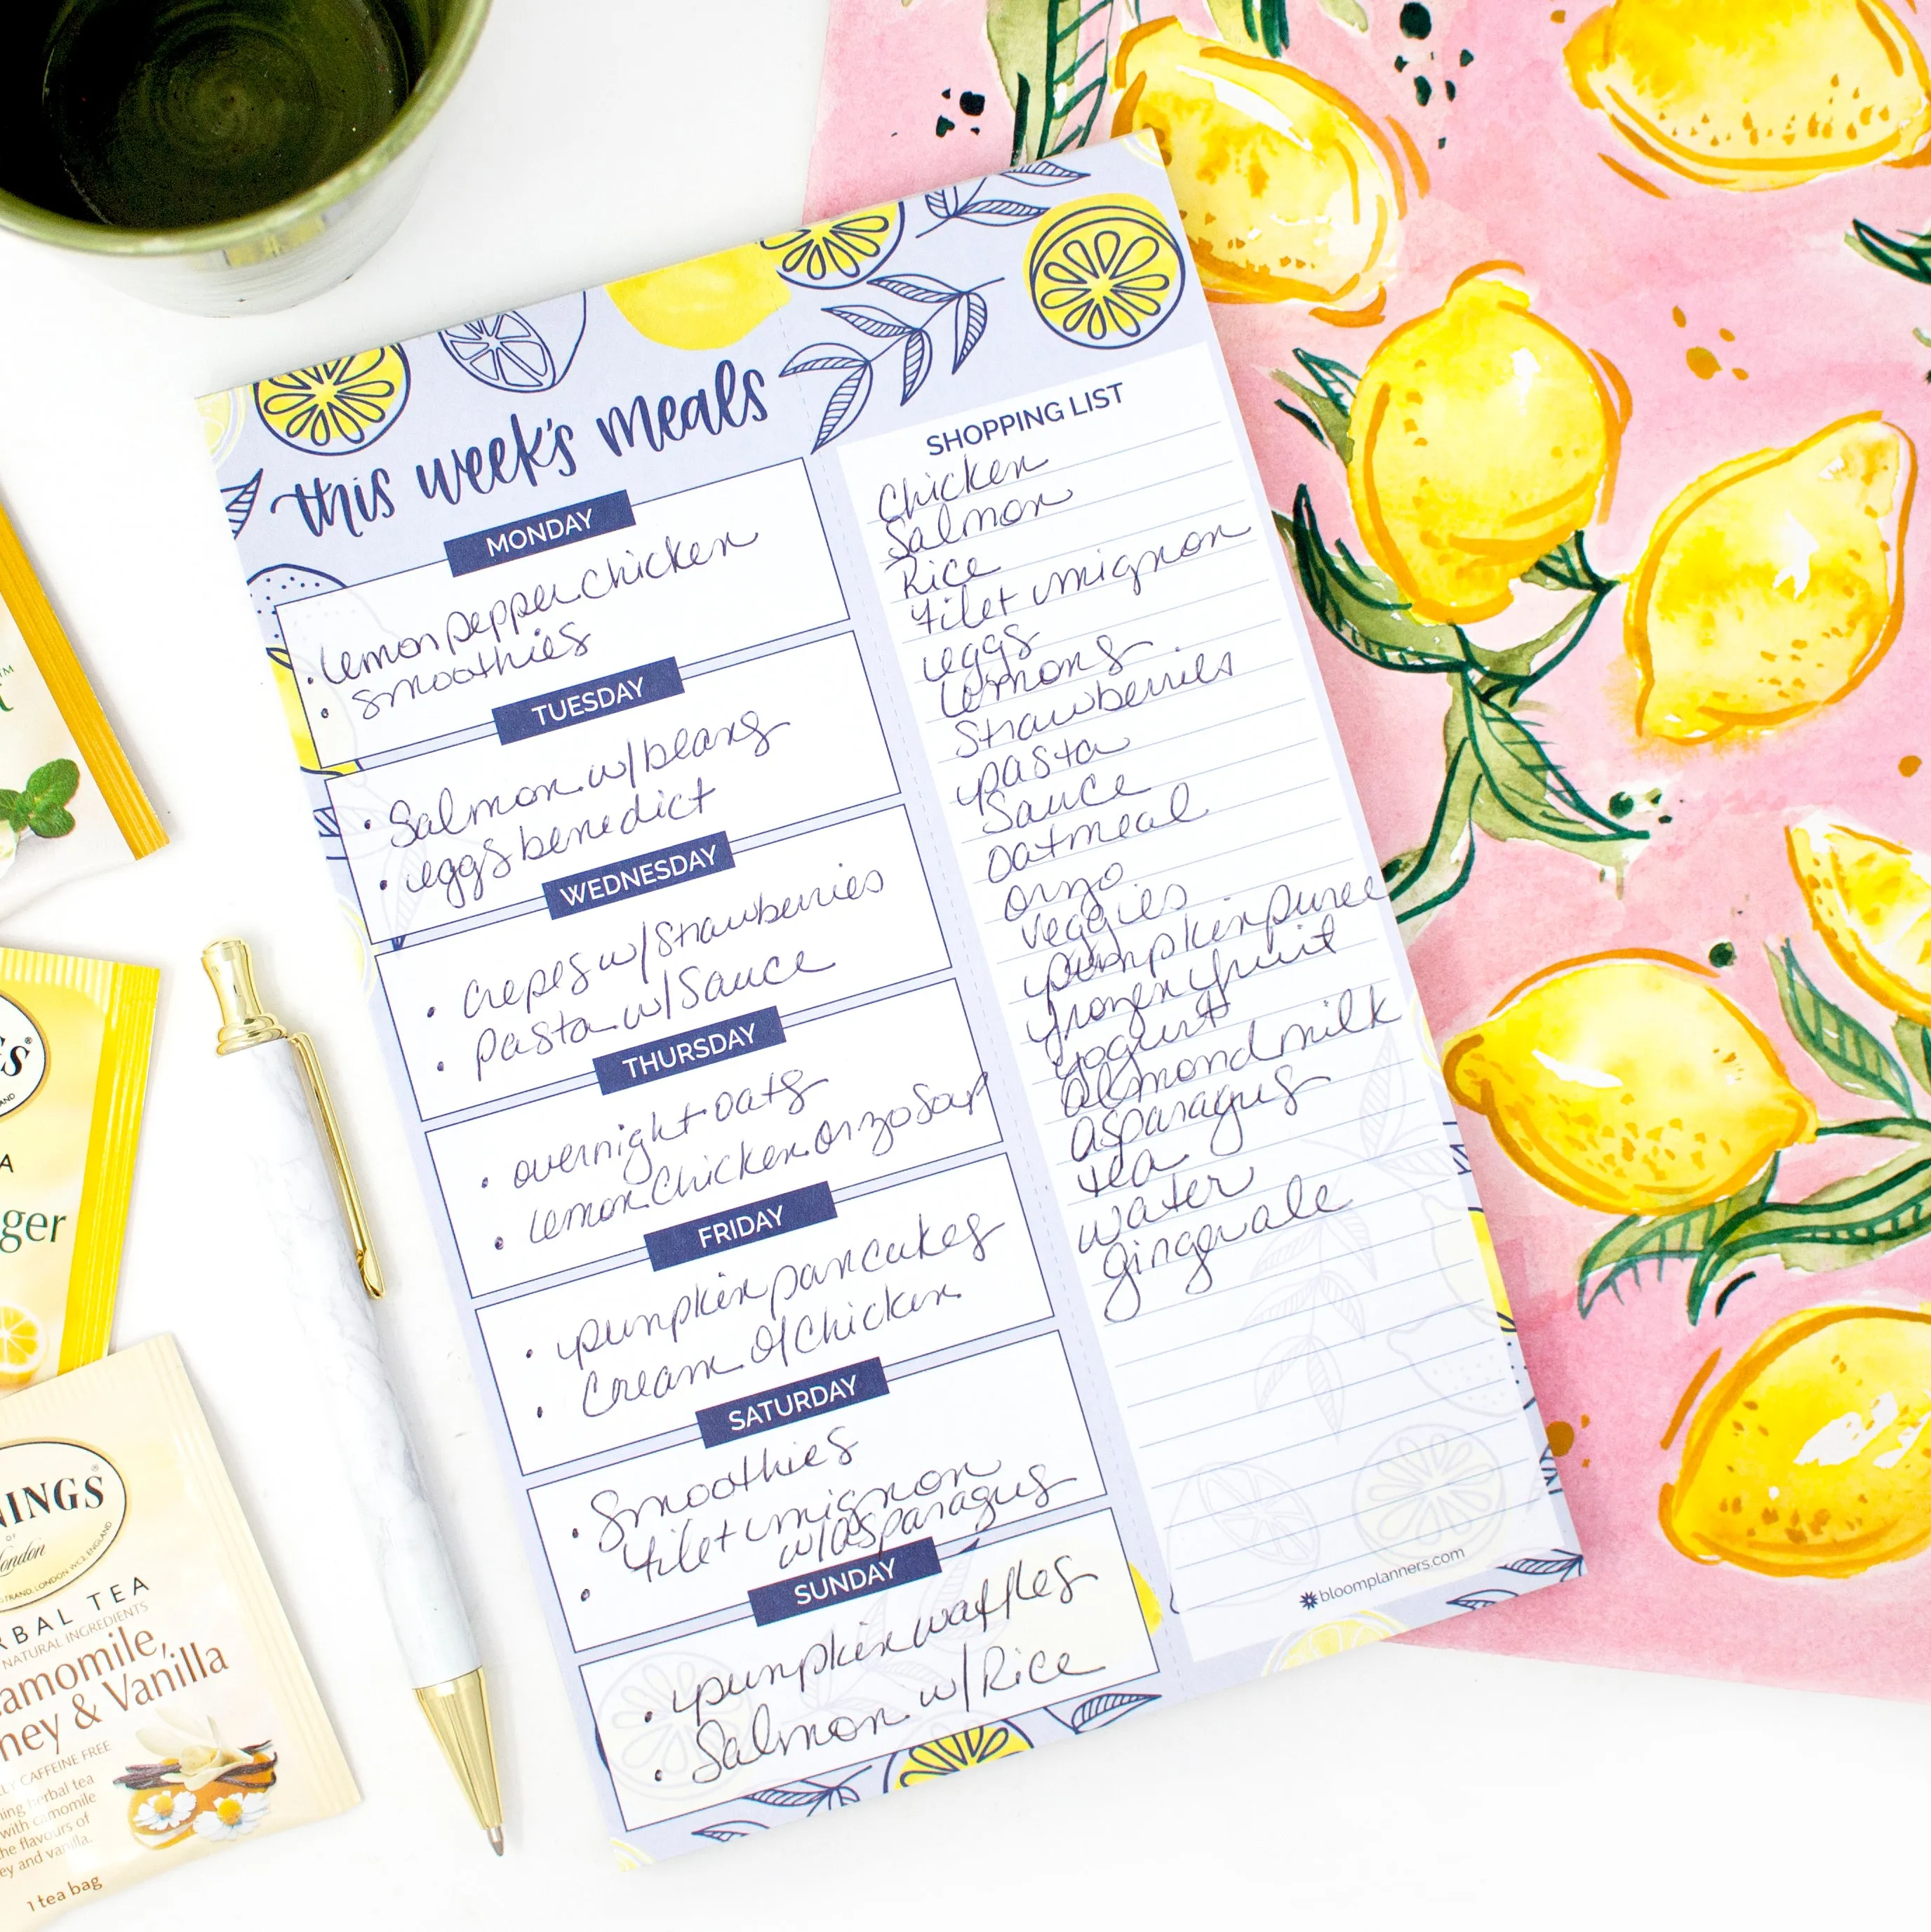 this week's meals
MONDAY
• lemon pepper chicken
• smoothies
TUESDAY
• Salmon w/beans
• eggs benedict
WEDNESDAY
• crepes w/Strawberries
• pasta w/Sauce
THURSDAY
• overnight oats
• lemon chicken orzo Soup
FRIDAY
• pumpkin pancakes
• Cream of Chicken
SATURDAY
• Smoothies
• filet mignon
w/asparagus
SUNDAY
• pumpkin waffles
• Salmon w/Rice
SHOPPING LIST
Chicken
Salmon
Rice
filet mignon
eggs
lemons
Strawberries
pasta
Sauce
oatmeal
orzo
veggies
pumpkin puree
frozen fruit
yogurt
almond milk
asparagus
tea
water
gingerale
bloomplanners.com
TM
A
ger
NINGS
OF
London
STRAND, LONDON WC2, ENGLAND
RBAL TEA
NATURAL INGREDIENTS
amomile,
ney & Vanilla
LY CAFFEINE FREE
ing herbal tea
with camomile
he flavours of
ey and vanilla.
1 tea bag